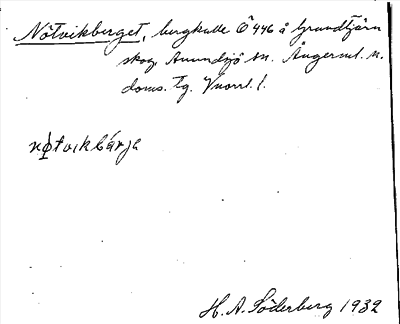 Nötvikberget, bergkulle Ö 446 å Grundtjärn
skog, Anundsjö sn. Ångerml. n.
doms. tg. Vnorrl. l.
nøtvikbárja
H. A. Söderberg 1932